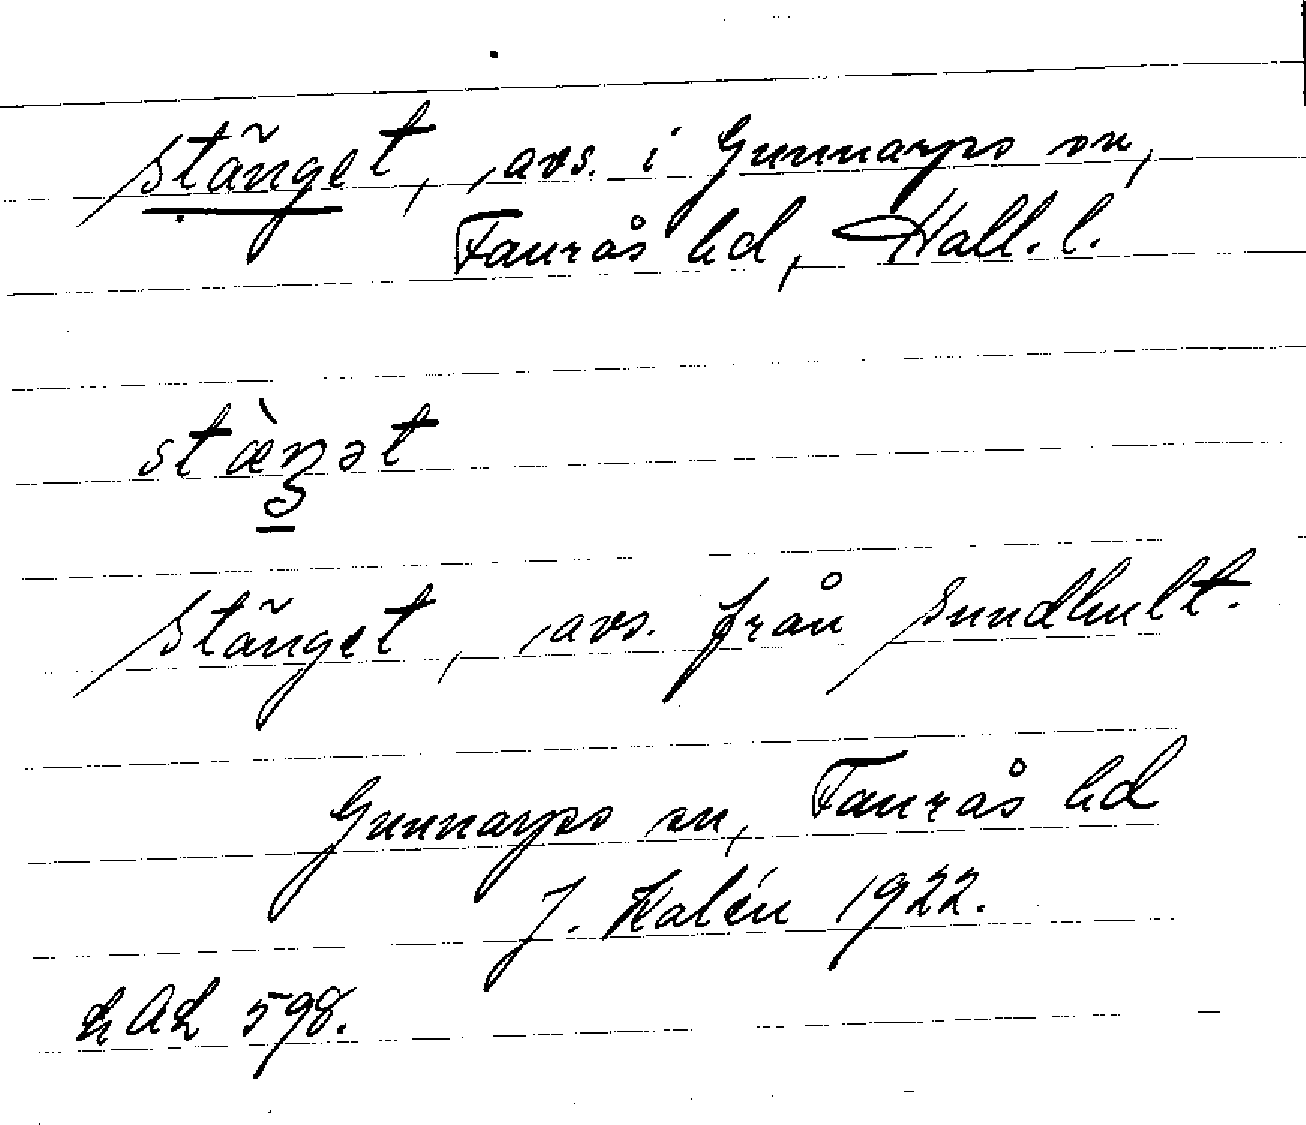 Stänget, avs. i Gunnarps sn,
Faurås hd, Hall. l.
stæ̀ŋət
Stänget, avs. från Sundhult.
Gunnarps sn, Faurås hd
J. Kalén 1922.
LAL 598.